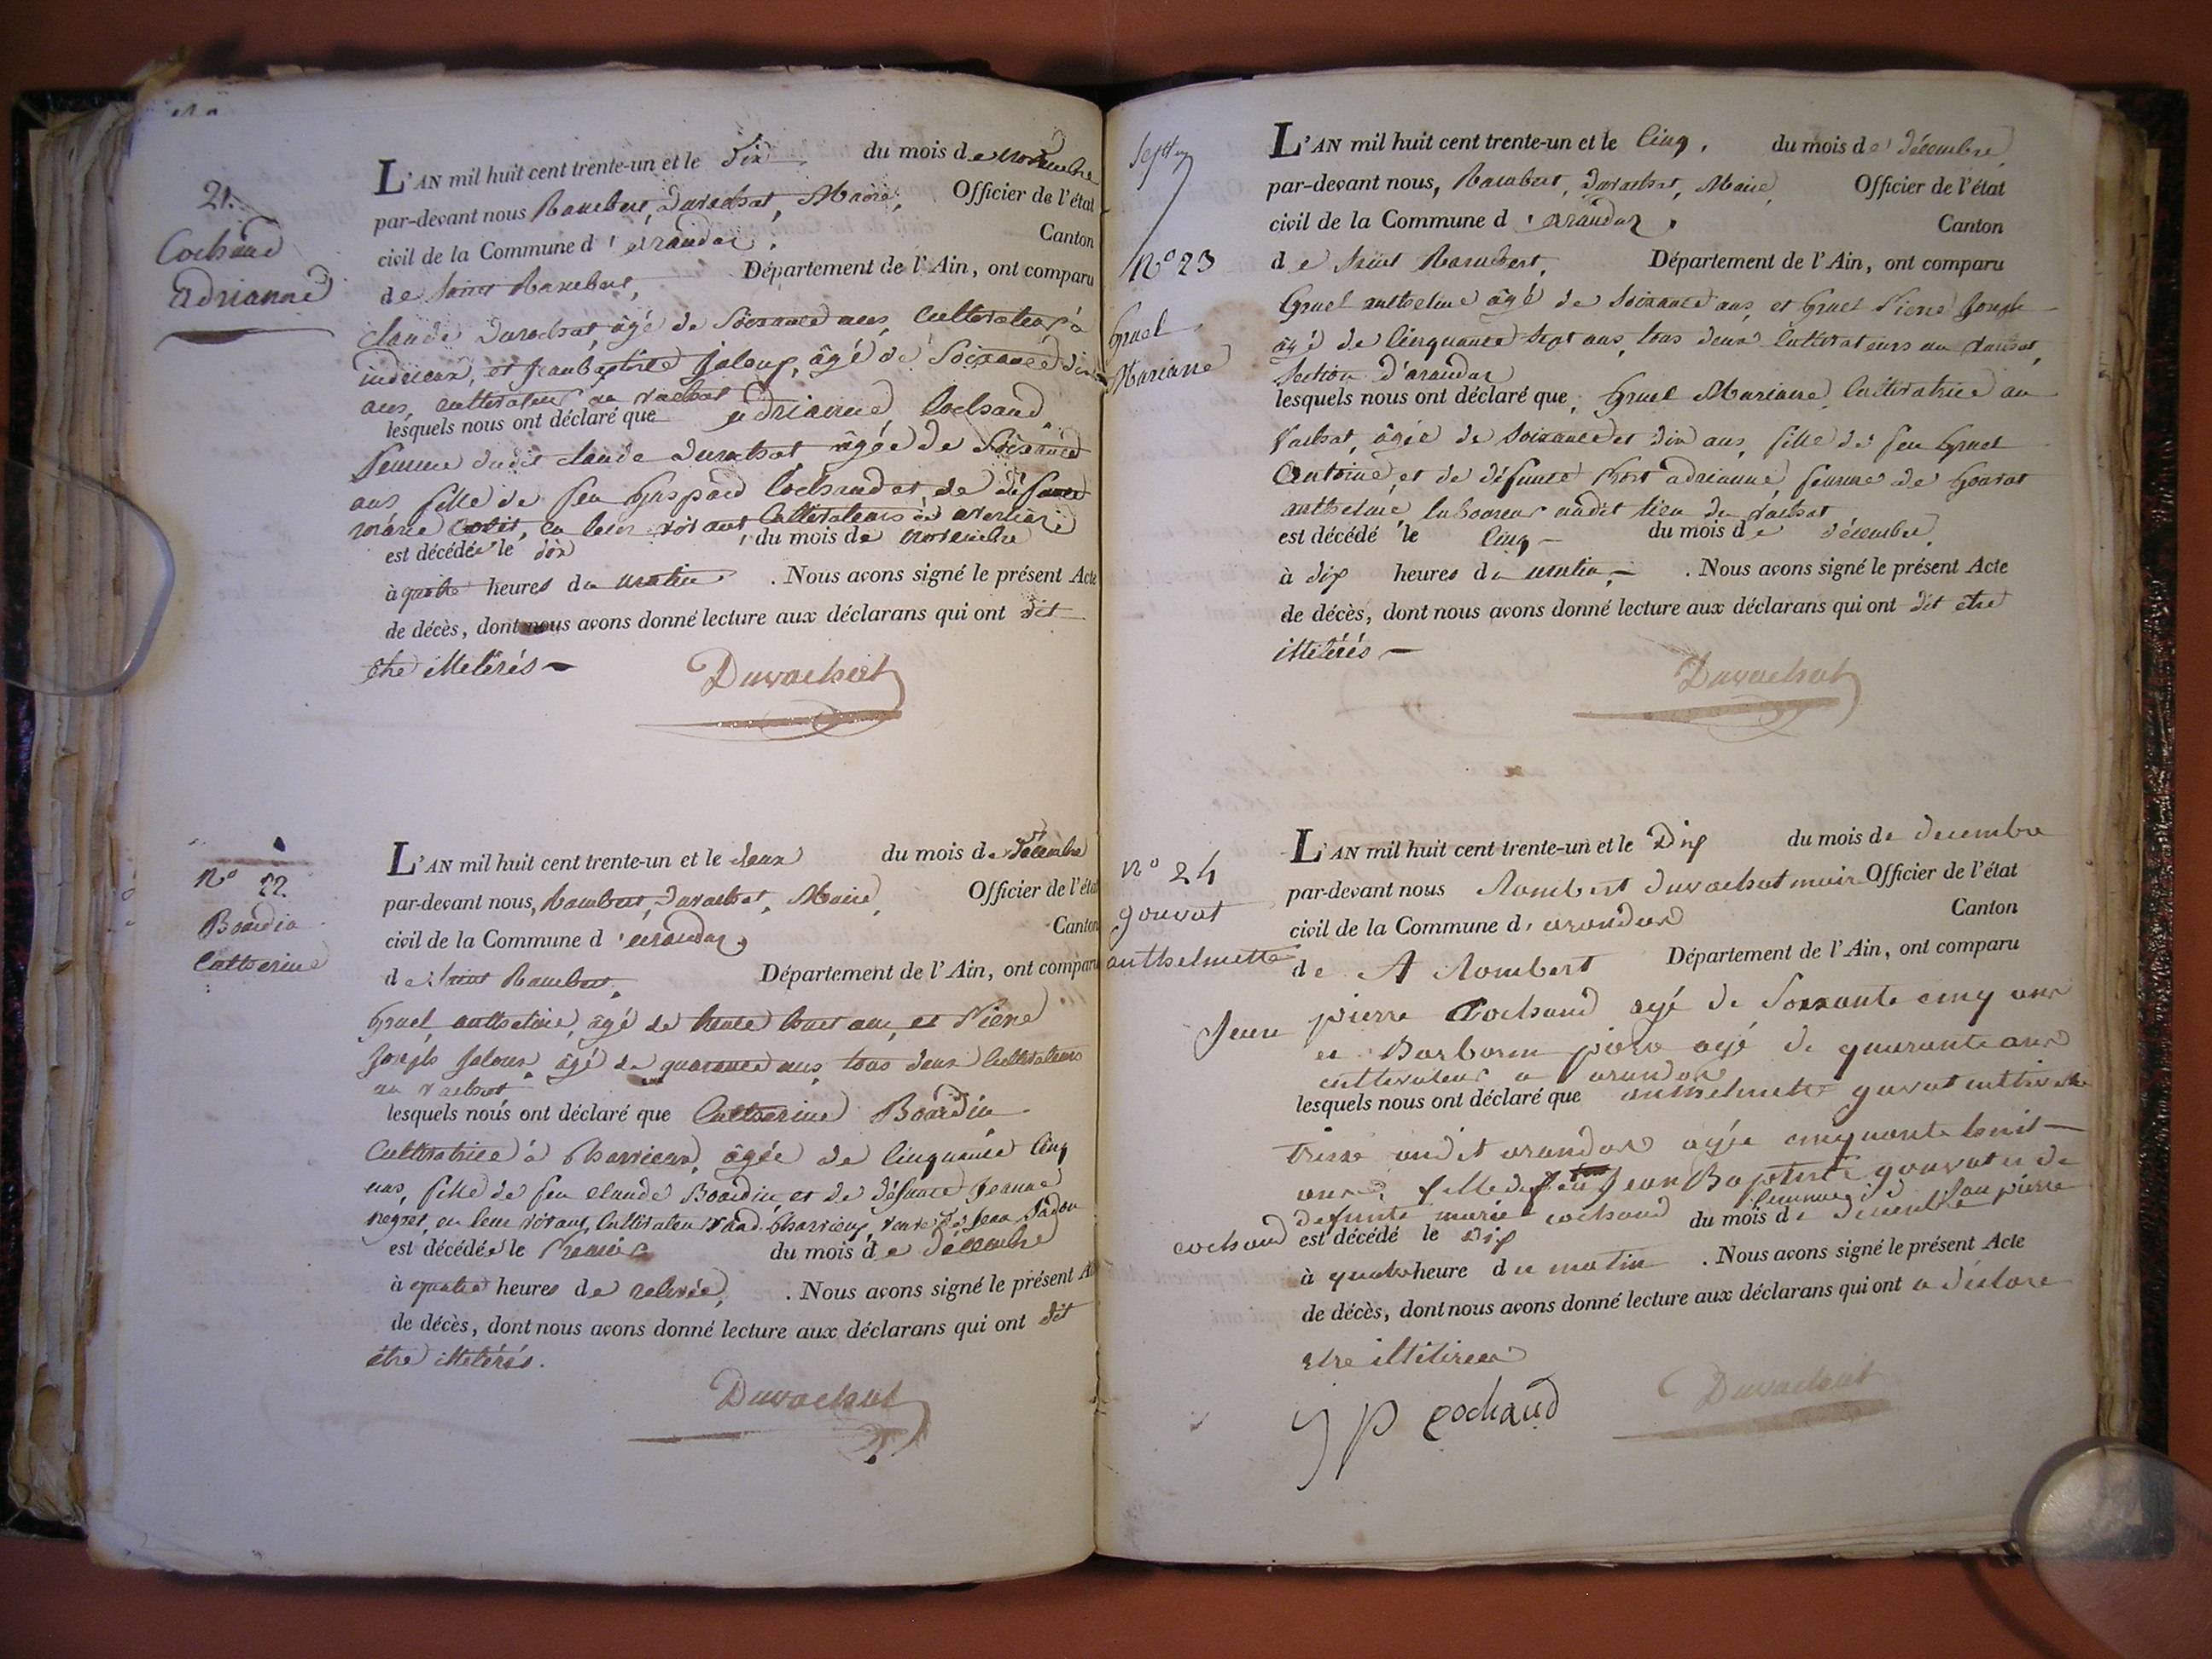 21.
Cochaud
adrianne
L'AN mil huit cent trente-un et le dix du mois de novembre
par-devant nous Rambert, Duvachat, Maire, Officier de l'état
civil de la Commune d'arandaz. Canton
de Saint Rambert, Département de l'Ain, ont comparu
Claude Duvachat, âgé de Soixante ans, Cultivateur à
indrieux, et Jeanbaptiste Jaloux, âgé de Soixante dix
ans, cultivateur au vachat
lesquels nous ont déclaré que adrianne Cochaud
femme dudit claude Duvachat âgée de Soixante
ans, fille de feu Gaspard Cochaud et de défunte
marie en leur vivant Cultivateurs à
est décédée le dix du mois de novembre
à quatre heures du matin. Nous avons signé le présent Acte
de décès, dont nous avons donné lecture aux déclarans qui ont dit
être illetérés
Duvachat
N° 22
Bourdin
Catherine
L'AN mil huit cent trente-un et le deux du mois de Décembre
par-devant nous, Rambert, Duvachat, Maire, Officier de l'état
civil de la Commune d'arandaz, Canton
de Saint Rambert, Département de l'Ain, ont comparu
Gruel, anthelme, âgé de trente huit ans, et Pierre
Joseph Jaloux, âgé de quarante ans, tous deux Cultivateurs
au vachat
lesquels nous ont déclaré que Catherine Bourdin
Cultivatrice à Charvieux, âgée de Cinquante Cinq
ans, fille de feu claude Bourdin et de défunte Jeanne
en leur vivant, Cultivateurs Charvieux, veuve de Jean
est décédée le Premier du mois de décembre
à quatre heures de relevée. Nous avons signé le présent Acte
de décès, dont nous avons donné lecture aux déclarans qui ont dit
être illetérés.
Duvachat
N° 23
Gruel
Mariane
L'AN mil huit cent trente-un et le Cinq, du mois de décembre
par-devant nous, Rambert, Duvachat, Maire, Officier de l'état
civil de la Commune d'arandaz, Canton
de Saint Rambert, Département de l'Ain, ont comparu
Gruel anthelme âgé de Soixante ans, et Gruel Pierre Joseph
âgé de Cinquante Sept ans, tous deux Cultivateurs au vachat,
Section d'arandaz
lesquels nous ont déclaré que, Gruel Mariane Cultivatrice au
Vachat, âgée de soixante et dix ans, fille de feu Gruel
Antoine, et de défunte adrianne femme de Gouvat
anthelme, laboureur audit lieu du vachat
est décédé le Cinq du mois de décembre
à dix heures du matin. Nous avons signé le présent Acte
de décès, dont nous avons donné lecture aux déclarans qui ont dit être
illetérés
Duvachat
N° 24
gouvat
anthelmette
L'AN mil huit cent trente-un et le Dix du mois de decembre
par-devant nous Rambert duvachat maire Officier de l'état
civil de la Commune d'arandas Canton
de St Rambert Département de l'Ain, ont comparu
Jean pierre Cochaud agé de Soixante cinq ans
et Barbarin agé de quarante ans
cultivateur a arandas
lesquels nous ont déclaré que anthelmette guvat cultiva
trisse audit arandas agée cinquante huit
ans fille de feu Jean Baptiste gouvat et de
defunte marie cochaud femme de Jean pierre
cochaud est décédé le dix du mois de decembre
à quatre heure du matin. Nous avons signé le présent Acte
de décès, dont nous avons donné lecture aux déclarans qui ont a declare
etre
J P Cochaud
Duvachat